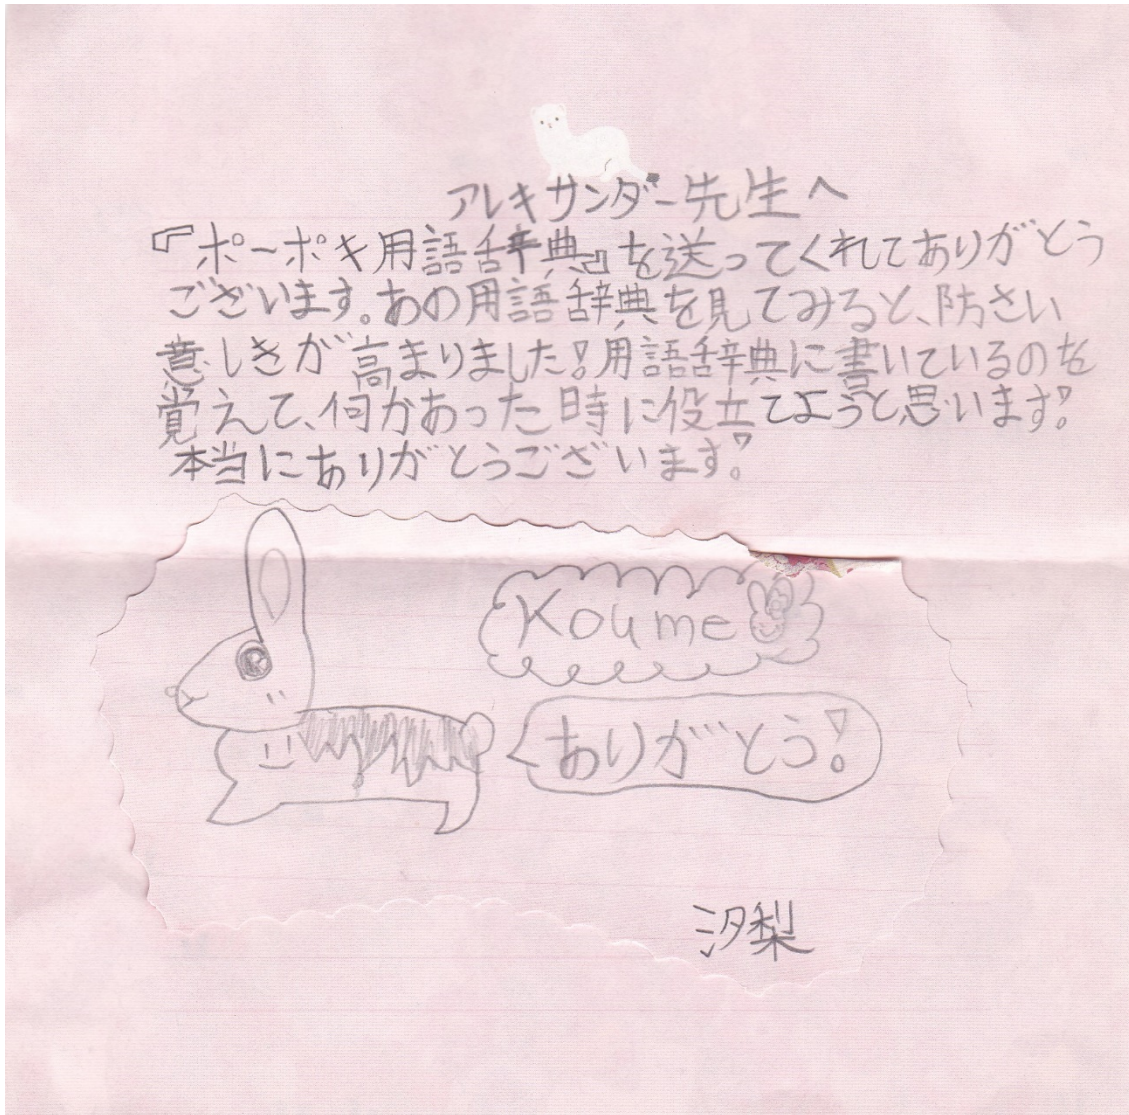 アレキサンダー先生へ
『ポーポキ用語辞典』を送ってくれてありがとう
ございます。あの用語辞典を見てみると、防さい
意しきが高まりました!用語辞典に書いているのを
覚えて、何かあった時に役立てようと思います!
本当にありがとうございます!
Koume
ありがとう!
汐梨